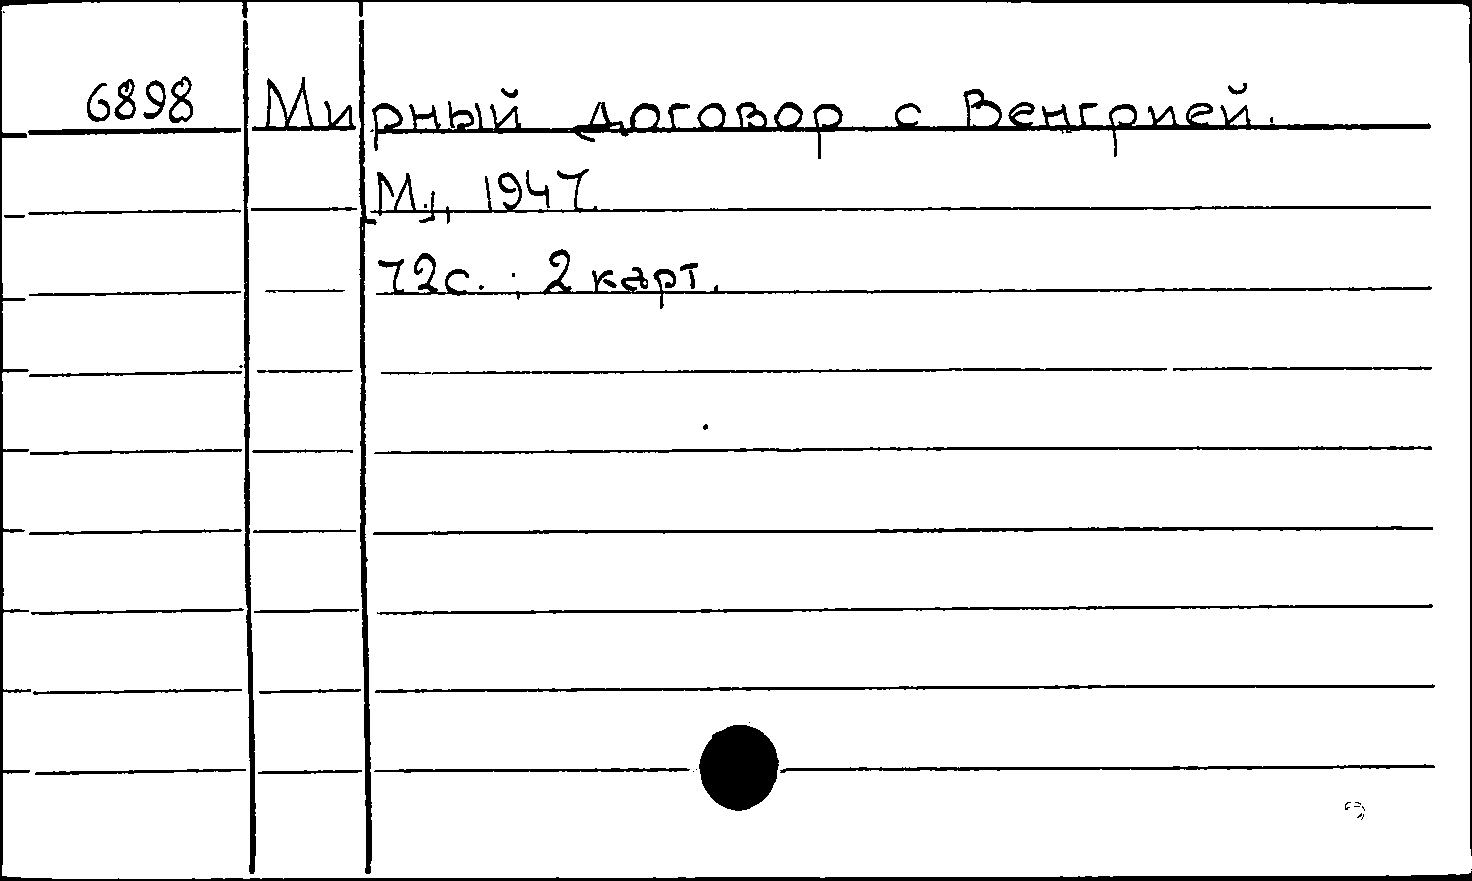 6898 Мирный договор с Венгрией.
М., 1947.
72с. ; 2 карт.